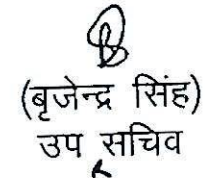 (बृजेन्द्र सिंह)
उप सचिव